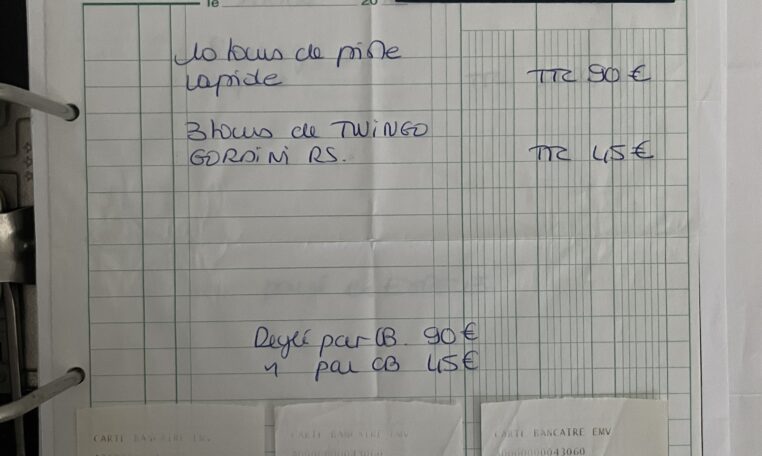 le 20
10 tours de piste
rapide TTC 90 €
3 tours de TWINGO
GORDINI RS. TTC 45 €
Reglé par CB. 90 €
" par CB 45 €
CARTE BANCAIRE EMV CARTE BANCAIRE EMV CARTE BANCAIRE EMV
0000000043060